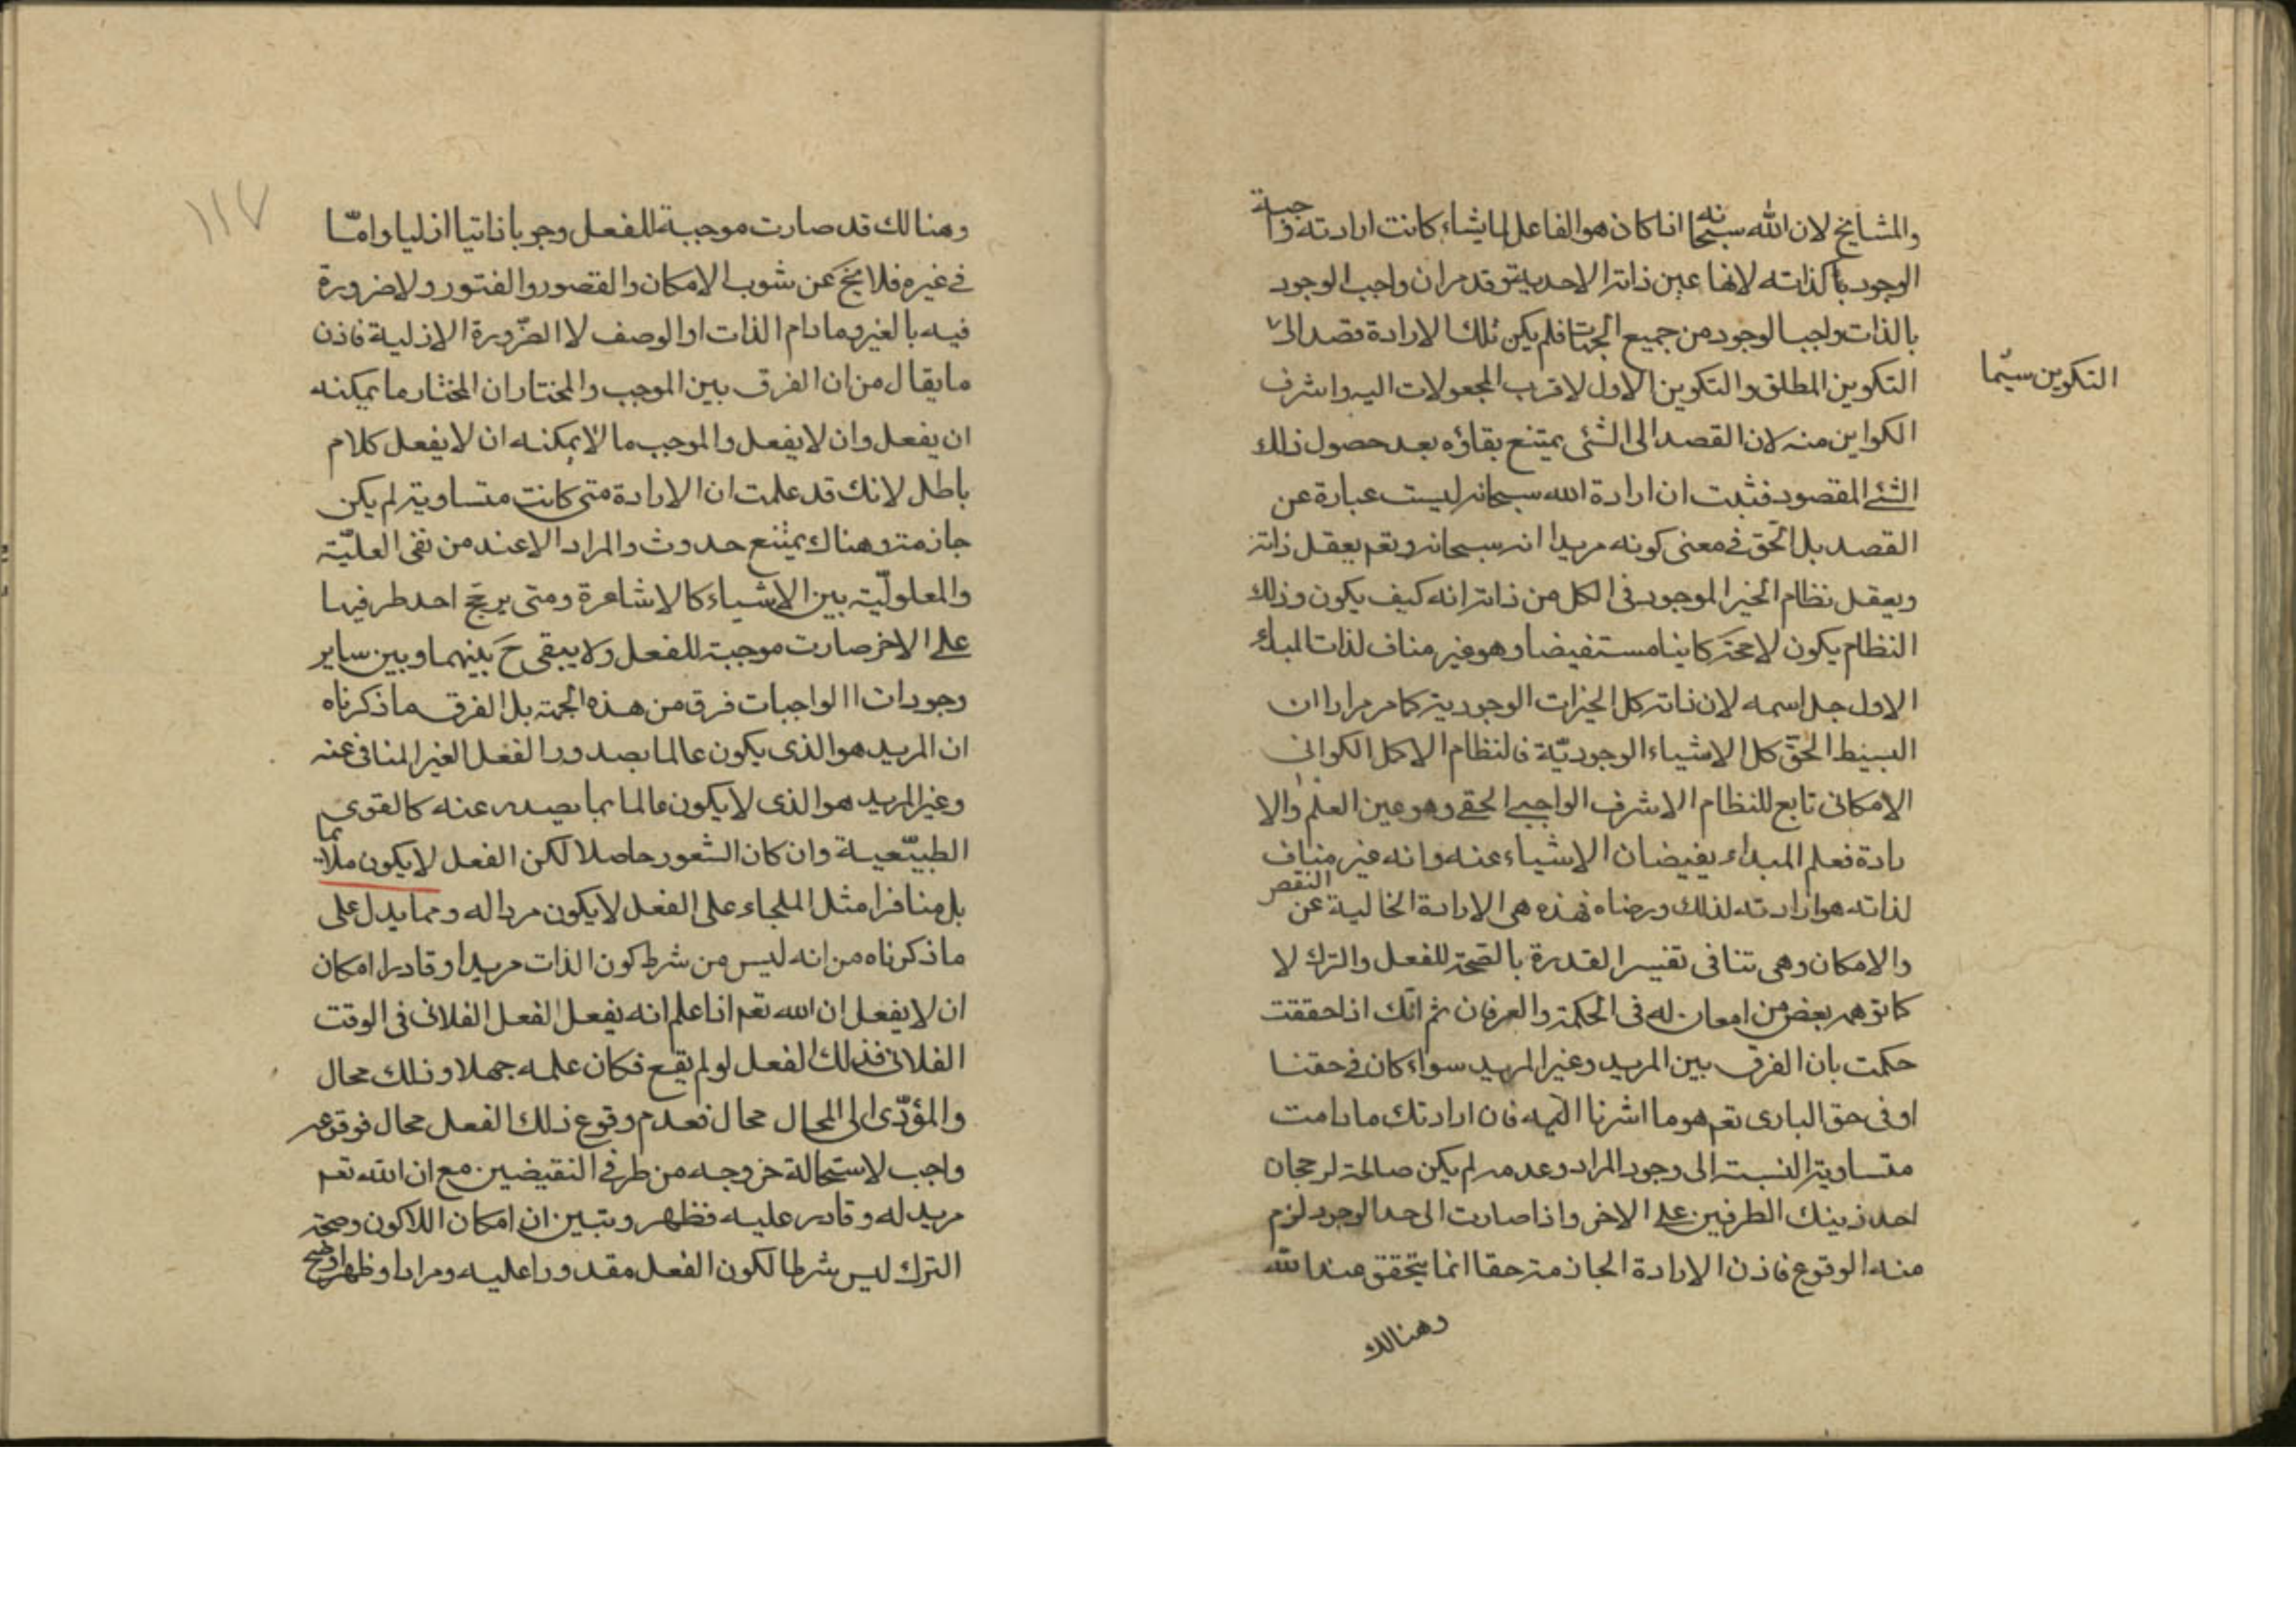 والمشايخ لان الله سبحانه اذا كان هو الفاعل لما يشاء كانت ارادته واجبة
الوجود كذاته لانها عين ذاته الاحدية وقد مر ان واجب الوجود
بالذات واجب الوجود من جميع الجهات فلم يكن تلك الارادة قصد الى
التكوين سيّما
التكوين المطلق والتكوين الاول لاقرب المجعولات اليه واشرف
الكواين منه لان القصد الى الشئ يمتنع بقاؤه بعد حصول ذلك
الشئ المقصود فثبت ان ارادة الله سبحانه ليست عبارة عن
القصد بل الحق في معنى كونه مريدا انه سبحانه وتعم يعقل ذاته
ويعقل نظام الخير الموجود في الكل من ذاته انه كيف يكون وذلك
النظام يكون لا محة كاينا مستفيضا وهو غير مناف لذات المبدء
الاول جل اسمه لان ذاته كل الخيرات الوجودية كما مر مرارا ان
البسيط الحقّ كل الاشياء الوجوديّة فالنظام الاكمل الكوانى
الامكانى تابع للنظام الاشرف الواجبى الحقى وهو عين العلم والا
رادة فعلم المبداء بفيضان الاشياء عنه وانه غير مناف
لذاته هو ارادته لذلك ورضاه فهذه هى الارادة الخالية عن النقص
والامكان وهى تنافى تفسير القدرة بالصحة للفعل والترك لا
كما توهمه بعض من امعان له فى الحكمة والعرفان ثم انّك اذا حققت
حكمت بان الفرق بين المريد وغير المريد سواء كان فى حقنا
او فى حق البارى تعم هو ما اشرنا اليه فان ارادتك ما دامت
متساوية النسبة الى وجود المراد وعدمه لم يكن صالحة لرجحان
احد ذينك الطرفين على الاخر واذا صارت الى حد الوجود لزم
منه الوقوع فاذن الارادة الجازمة حقا انما يتحقق عند الله
وهنالك
١١٧
وهنالك قد صارت موجبة للفعل وجوبا ذاتيا ازليا وامّا
فى غيره فلا يخ عن شوب الامكان والقصور والفتور ولا ضرورة
فيه بالغير وما دام الذات او الوصف لا الضّرورة الازلية فاذن
ما يقال من ان الفرق بين الموجب والمختار ان المختار ما يمكنه
ان يفعل وان لا يفعل والموجب ما لا يمكنه ان لا يفعل كلام
باطل لانك قد علمت ان الارادة متى كانت متساوية لم يكن
جازمة وهناك يمتنع حدوث والمراد الا عند من نفى العليّة
والمعلوليّة بين الاشياء كالاشاعرة ومتى يرجح احد طرفيها
على الاخر صارت موجبة للفعل ولا يبقى ح بينهما وبين ساير
وجودات الواجبات فرق من هذه الجهة بل الفرق ما ذكرناه
ان المريد هو الذى يكون عالما بصدور الفعل الغير المنافى عنه
وغير المريد هو الذى لا يكون عالما بما يصدر عنه كالقوى
الطبيّعية وان كان الشعور حاصلا لكن الفعل لا يكون ملائما
بل منافرا مثل الملجاء على الفعل لا يكون مراد له ومما يدل على
ما ذكرناه من انه ليس من شرط كون الذات مريدا وقادرا امكان
ان لا يفعل ان الله تعم اذا علم انه يفعل الفعل الفلانى فى الوقت
الفلانى فذلك الفعل لو لم يقع فكان علمه جهلا وذلك محال
والمؤدّى الى المحال محال فعدم وقوع ذلك الفعل محال فوقوعه
واجب لاستحالة خروجه من طرفى النقيضين مع ان الله تعم
مريد له وقادر عليه فظهر وتبين ان امكان اللاكون وصحة
الترك ليس شرطا لكون الفعل مقدورا عليه ومرادا وظهر اوضح